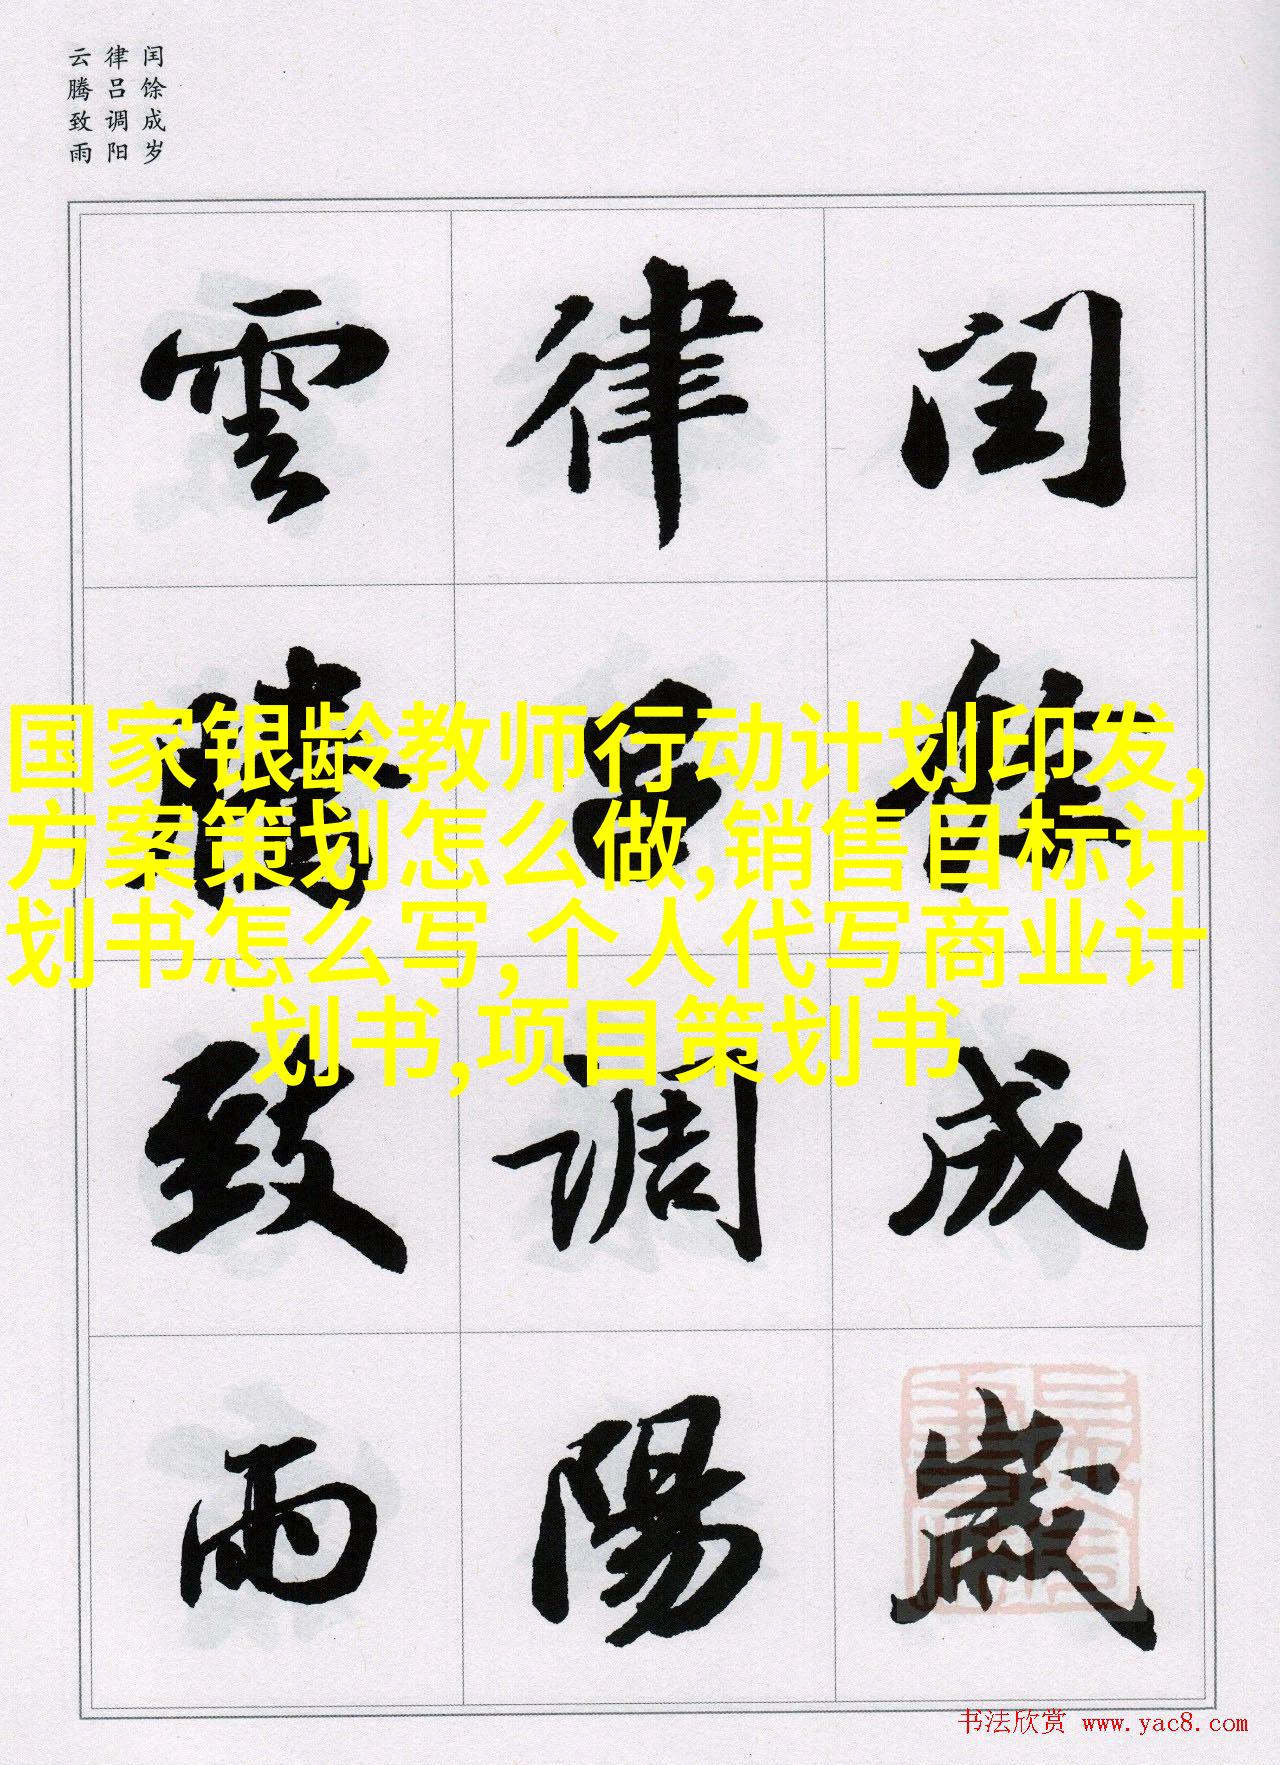 闰馀成岁
律吕调阳
云腾致雨
閏餘成歲
律吕調陽
雲騰致雨
国家银龄教师行动计划印发,
方案策划怎么做,销售目标计
划书怎么写,个人代写商业计
划书,项目策划书
书法欣赏 www.yac8.com